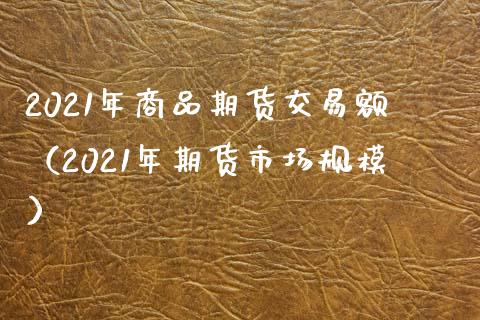 2021年商品期货交易额
（2021年期货市场规模
）